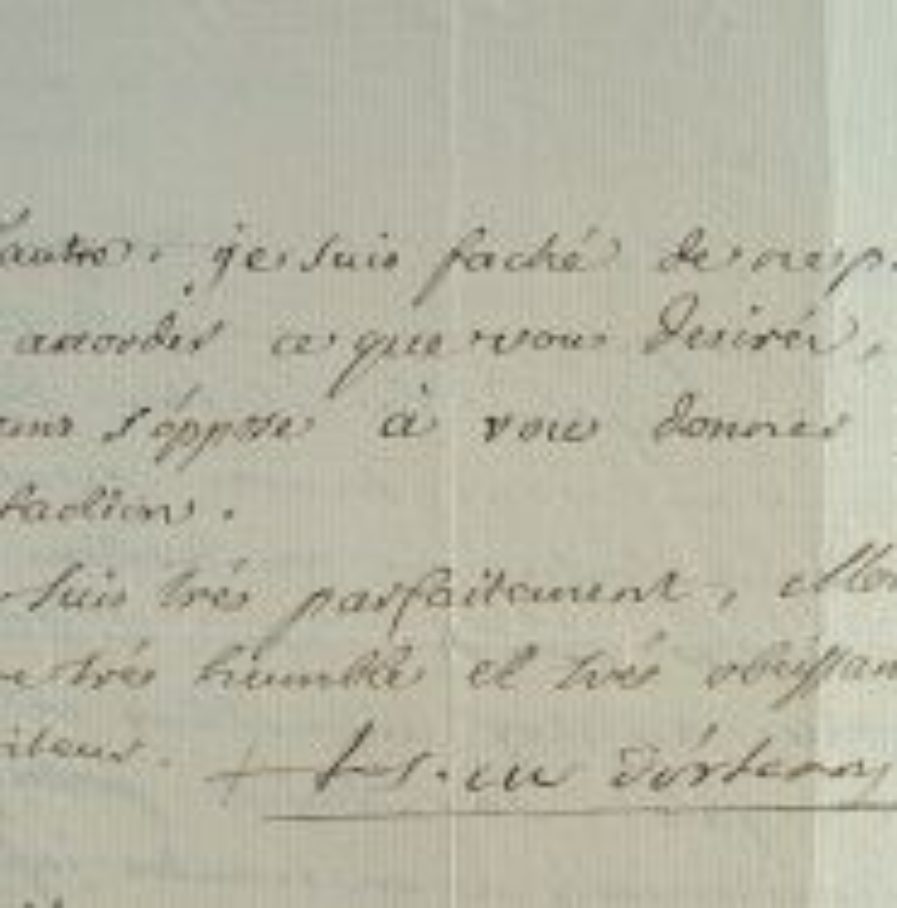 l'autre. je suis faché de ne p
accorder ce que vous desirés,
s'oppose à vous donner
tadion.
suis très parfaitement, Mon
tre très humble et très obeissan
iteur. + d'orleans